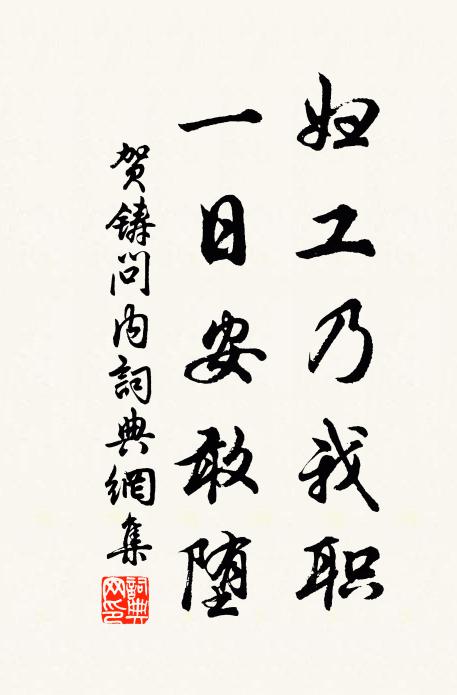 妇工乃我职
一日安敢堕
贺铸问内詞典網集
詞典网印